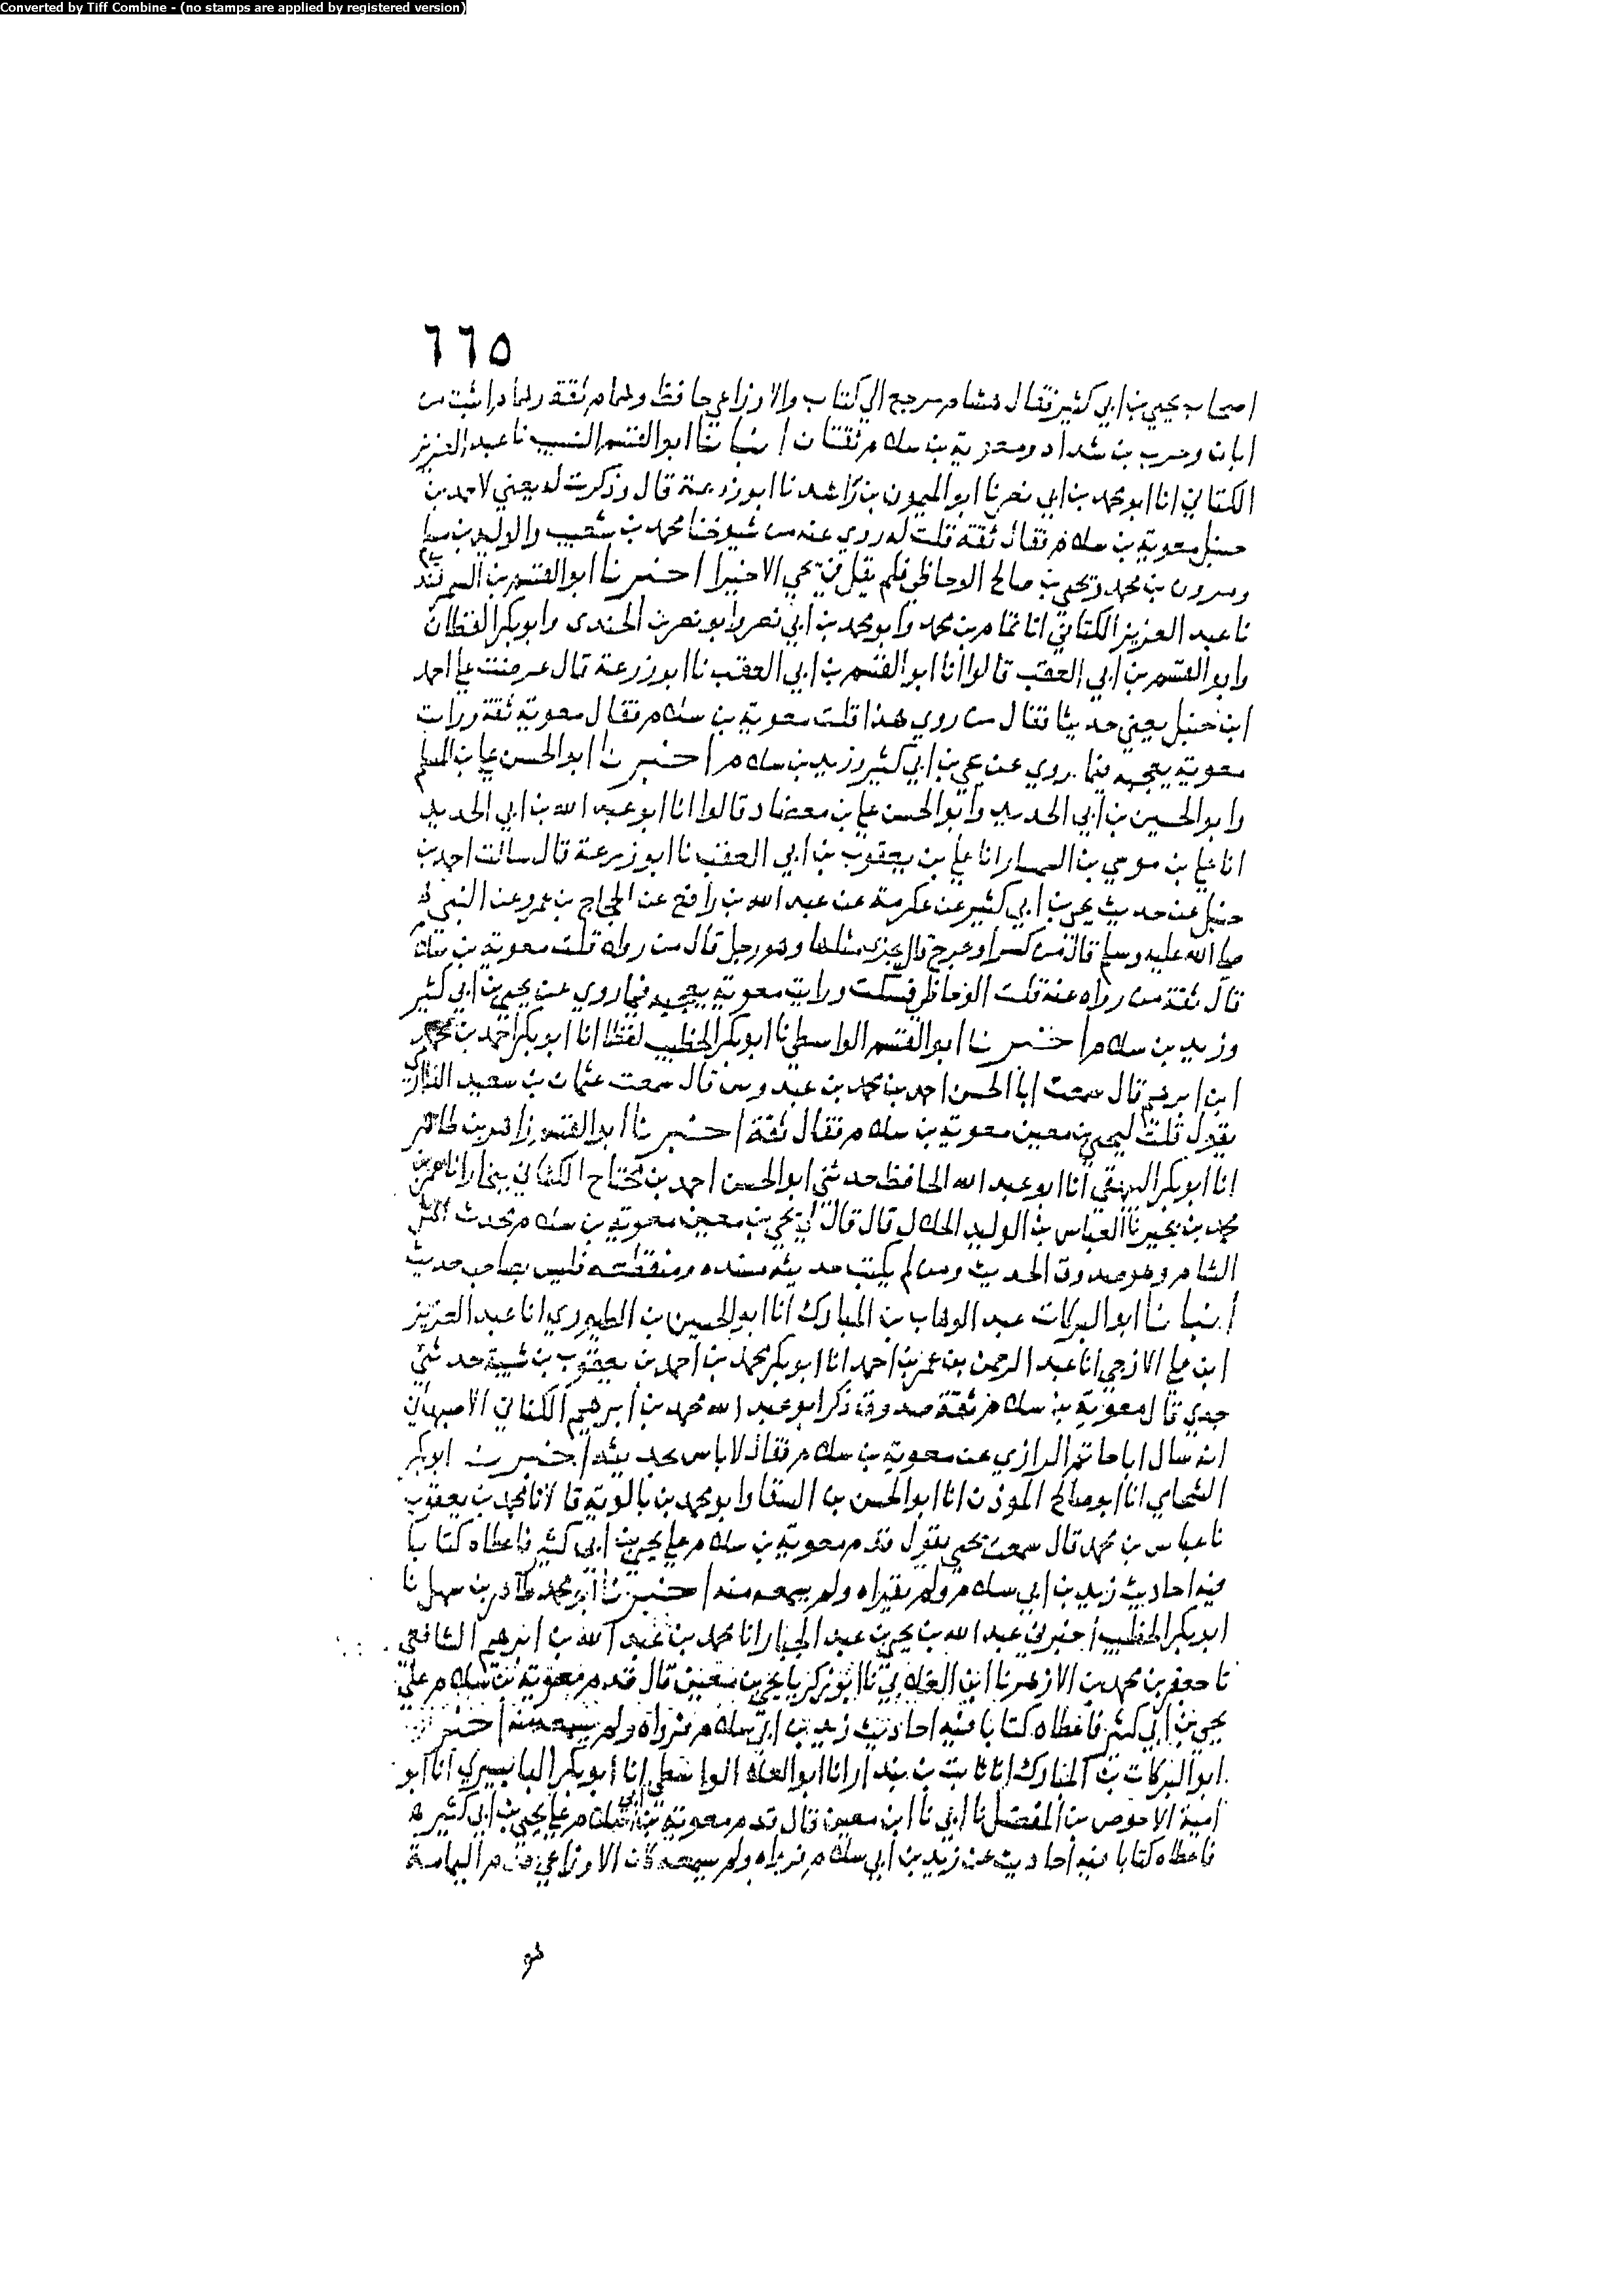 Converted by Tiff Combine - (no stamps are applied by registered version)
٦٦٥
اصحاب يحيى بن ابي كثير فقال هشام يرجع الي كتاب والاوزاعي حافظ وهمام ثقة وهمام اثبت من
ابان وحرب بن شداد ومعوية بن سلام ثقتان انبانا ابو القسم النسيب نا عبد العزيز
الكتاني انا ابو محمد بن ابي نصر نا ابو الميمون بن راشد نا ابو زرعة قال وذكرت له يعني لاحمد بن
حنبل معوية بن سلام فقال ثقة قلت له روي عنه من شيوخنا محمد بن شعيب والوليد بن مسلم
ومرون بن محمد ويحيى بن صالح الوحاظي فلم يقل في يحيى الا خيرا اخبرنا ابو القسم بن السمرقندي
نا عبد العزيز الكتاني انا تمام بن محمد وابو محمد بن ابي نصر وابو نصر بن الجندي وابو بكر القطان
وابو القسم بن ابي العقب قالوا انا ابو القسم بن ابي العقب نا ابو زرعة قال عرضت علي احمد
ابن حنبل يعني حديثا فقال من روي هذا قلت معوية بن سلام فقال معوية ثقة ورايت
معوية يعجبه فيما روي عن يحيى بن ابي كثير وزيد بن سلام اخبرنا ابو الحسن علي بن المسلم
وابو الحسين بن ابي الحديد وابو الحسن علي بن معضاد قالوا انا ابو عبد الله بن ابي الحديد
انا علي بن موسي بن السمسار انا علي بن يعقوب بن ابي العقب نا ابو زرعة قال سالت احمد بن
حنبل عن حديث يحيى بن ابي كثير عن عكرمة عن عبد الله بن رافع عن الحجاج بن عمرو عن النبي
صلى الله عليه وسلم قال من كسر او عرج قال يجزي مثلها وهو رجل قال من رواه قلت معوية بن سلام
قال ثقة من رواه عنه قلت الوحاظي فسكت ورايت معوية يعجبه فيما روي عن يحيى بن ابي كثير
وزيد بن سلام اخبرنا ابو القسم الواسطي نا ابو بكر الخطيب لفظا انا ابو بكر احمد بن محمد
ابن ابرهيم قال سمعت ابا الحسن احمد بن محمد بن عبدوس قال سمعت عثمان بن سعيد الدارمي
يقول قلت ليحيى بن معين معوية بن سلام فقال ثقة اخبرنا ابو القسم زاهر بن طاهر
انا ابو بكر البيهقي انا ابو عبد الله الحافظ حدثني ابو الحسن احمد بن محتاج الكشاني ببخارا نا عمر بن
محمد بن بجير نا العباس بن الوليد الخلال قال قال لي يحيى بن معين معوية بن سلام محدث اهل
الشام وهو صدوق الحديث ومن لم يكتب حديثه مسنده ومنقطعه فليس بصاحب حديث
انبانا ابو البركات عبد الوهاب بن المبارك انا ابو الحسين بن الطيوري انا عبد العزيز
ابن علي الازجي انا عبد الرحمن بن عمر بن احمد انا ابو بكر محمد بن احمد بن يعقوب بن شيبة حدثني
جدي قال معوية بن سلام ثقة صدوق ذكر ابو عبد الله محمد بن ابرهيم الكتاني الاصبهاني
انه سال ابا حاتم الرازي عن معوية بن سلام فقال لا باس بحديثه اخبرنا ابو بكر
الشحامي انا ابو صالح الموذن انا ابو الحسن بن السقا وابو محمد بن بالوية قالا نا محمد بن يعقوب
نا عباس بن محمد قال سمعت يحيى يقول قدم معوية بن سلام علي يحيى بن ابي كثير فاعطاه كتابا
فيه احاديث زيد بن ابي سلام ولم يقراه ولم يسمعه منه اخبرنا ابو محمد طاهر بن سهل نا
ابو بكر الخطيب اخبرني عبد الله بن يحيى بن عبد الجبار انا محمد بن عبد الله بن ابرهيم الشافعي
نا جعفر بن محمد بن الازهر نا ابن الغلابي نا ابو زكريا يحيى بن معين قال قدم معوية بن سلام علي
يحيى بن ابي كثير فاعطاه كتابا فيه احاديث زيد بن ابي سلام فقراه ولم يسمعه منه اخبرنا
ابو البركات بن المبارك انا ثابت بن بندار انا ابو العلاء الواسطي انا ابو بكر البابسيري انا ابو
امية الاحوص بن المفضل نا ابي نا ابن معين قال قدم معوية بن ابي سلام علي يحيى بن ابي كثير
فاعطاه كتابا فيه احاديث عن زيد بن ابي سلام فقراه ولم يسمعه كان الاوزاعي قدم اليمامة